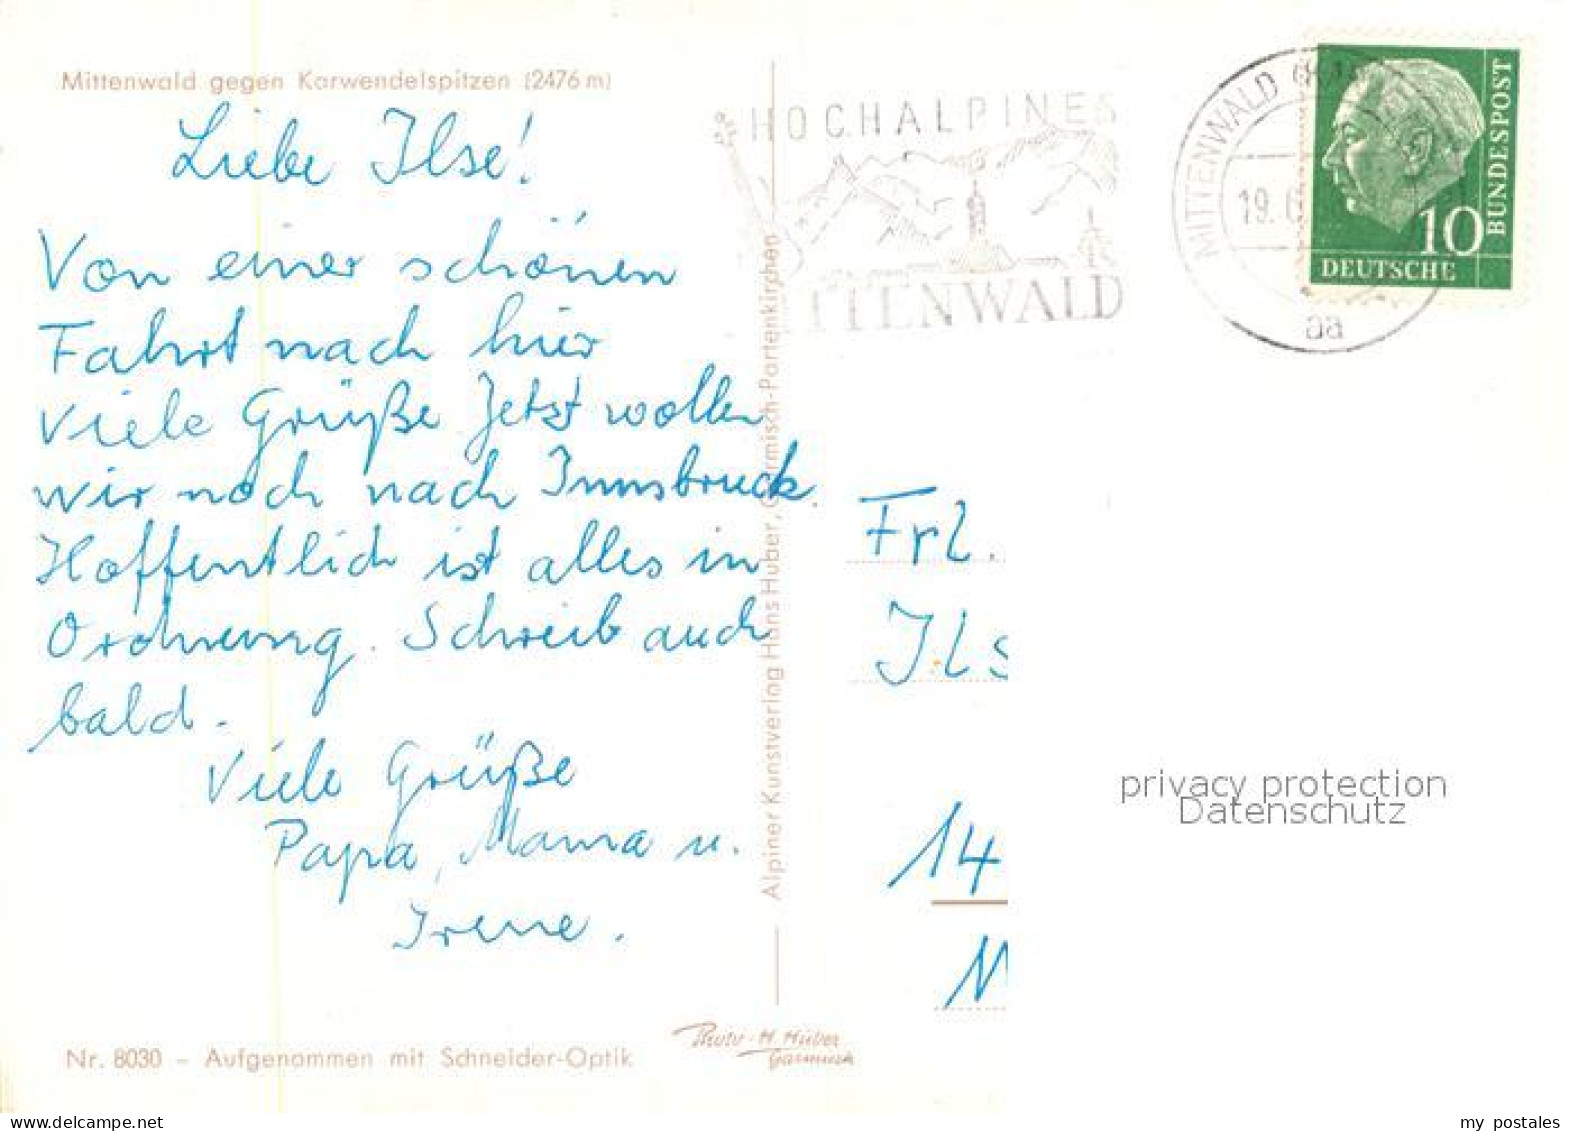 Mittenwald gegen Karwendelspitzen (2476 m)
Liebe Ilse!
Von einer schönen
Fahrt nach hier
viele Grüße Jetzt wollen
wir noch nach Innsbruck.
Hoffentlich ist alles in
Ordnung. Schreib auch
bald.
Viele Grüße
Papa, Mama u.
Irene.
Nr. 8030 – Aufgenommen mit Schneider-Optik
Photo-H. Huber
Garmisch
Alpiner Kunstverlag Hans Huber, Garmisch-Partenkirchen
HOCHALPINES
ITTENWALD
MITTENWALD
19.
aa
DEUTSCHE
BUNDESPOST
10
Frl.
Ils
14
privacy protection
Datenschutz
my postales